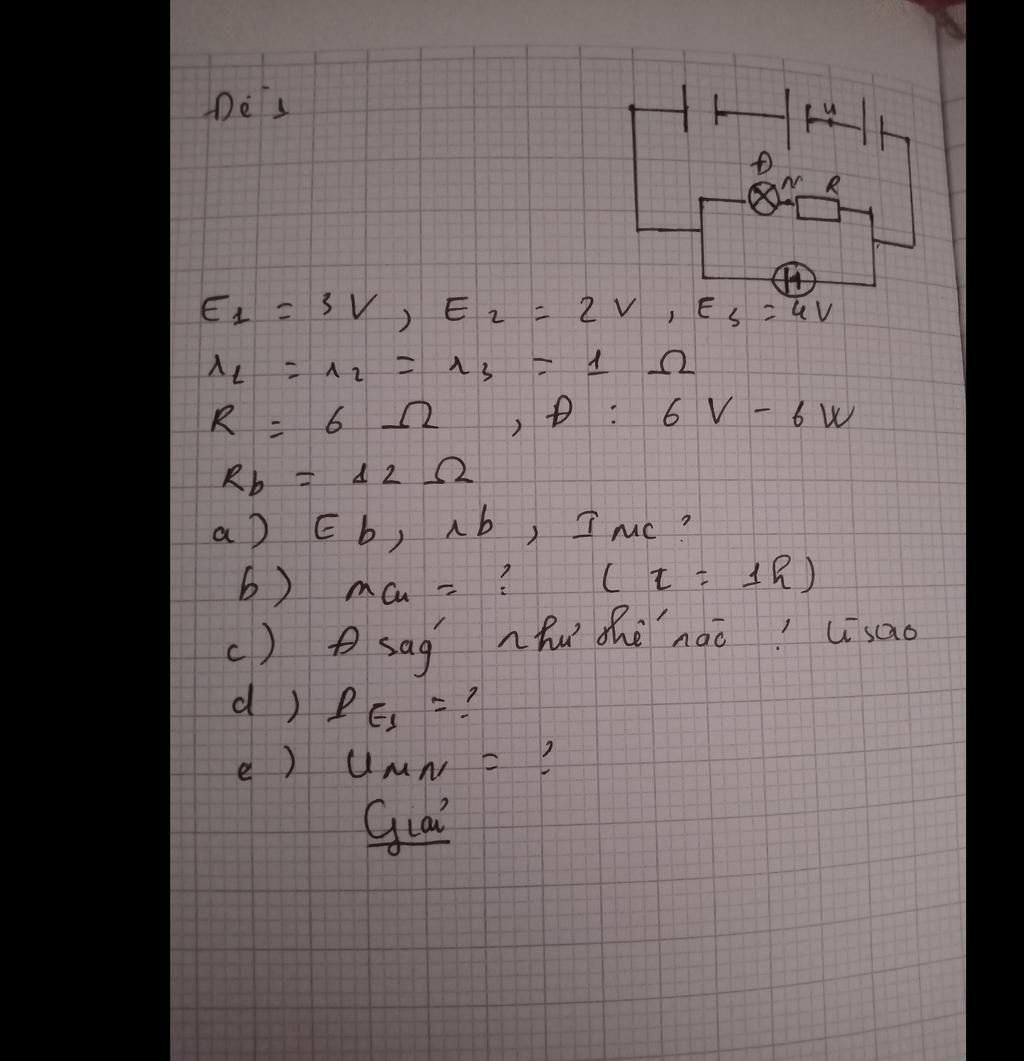 Đề 1
M
Đ N R
E1 = 3 V, E2 = 2 V, E3 = 4V
r1 = r2 = r3 = 1 Ω
R = 6 Ω, Đ : 6 V - 6 W
Rb = 12 Ω
a) Eb, rb, I mc ?
b) mCu = ? ( t = 1h)
c) Đ ság như thế nào ? Vì sao
d) P E1 = ?
e) UMN = ?
Giải